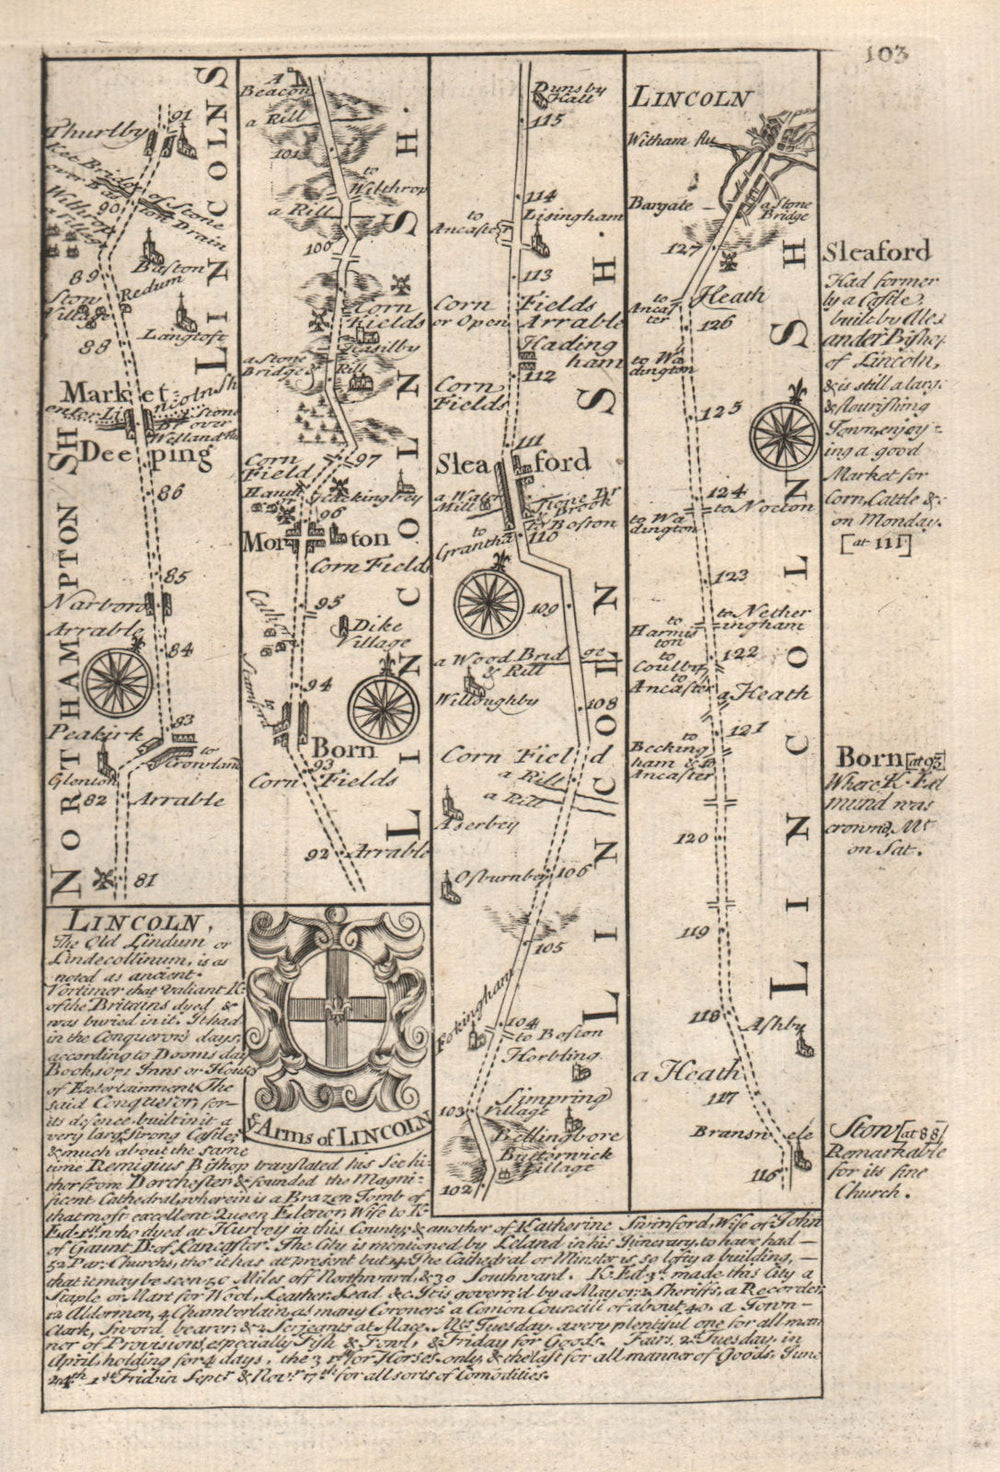 103
LINCOLNS
91
Thurlby
Ket Bridge of Stone
over Baston Drain
90
Baston
89
Redum
Stow
Village
Langtoft
88
Market
Deeping
86
85
Narboro
Arrable
84
83
Peakirk
to
Crowland
Glenton
82
Arrable
81
NORTHAMPTON SH
A
Beacon
a Rill
101
to
Wilthrop
a Rill
100
Corn
Fields
a Stone
Bridge &
Rill
Corn
Field
97
Hackingby
96
Morton
Corn Fields
95
Dike
Village
94
Born
93
Corn Fields
92
Arrable
LINCOLN SH.
Dunsby
Hall
115
114
to
Ancaster
Lisingham
113
Corn Fields
or Open Arrable
Hading
ham
112
Corn
Fields
111
Sleaford
a Water
Mill
Stone Br
& Brook
to Boston
to
Grantham
110
109
a Wood Bridge
& Rill
Willoughby
108
Corn Field
a Rill
a Rill
Aserbey
Osburnby
106
105
Fokingham
104
to Boston
Horbling
Simpring
Village
103
Bellingbore
Butterwick
Village
102
LINCOLN SH.
LINCOLN
Witham flu
Bargate
a Stone
Bridge
127
to
Ancaster
Heath
126
to Wa
dington
125
124
to Nocton
to Wa
dington
123
to Nether
ingham
to
Harmis
ton
122
to
Coulby
to
Ancaster
a Heath
121
to
Becking
ham & to
Ancaster
120
119
118
Ashby
a Heath
117
Bransnele
116
LINCOLN SH
Sleaford
Had former
ly a Castle,
built by Alex
ander Bishop
of Lincoln,
& is still a large
& flourishing
Town, enjoy-
ing a good
Market for
Corn, Cattle &c
on Monday.
[at 111]
Born [at 93]
Where K. Ed
mund was
crownd, Mt
on Sat.
Stow [at 88]
Remarkable
for its fine
Church.
LINCOLN,
The Old Lindum or
Lindecollinum, is as
noted as ancient.
Vortimer that valiant K.
of the Britains dyed, &
was buried in it. It had
in the Conquerors days,
according to Dooms day
Book, 1071 Inns or Houses
of Entertainment. The
said Conqueror for
its defence built in it a
very large Strong Castle,
& much about the same
time Remigius Bishop translated his See hi-
ther from Dorchester & founded the Magni-
ficent Cathedral, wherein is a Brazen Tomb of
that most excellent Queen Elenor Wife to K.
Ed. 1st. who dyed at Hurbey in this County, & another of Katherine Swinford, Wife of John
of Gaunt D. of Lancaster. The City is mentioned by Leland in his Itinerary, to have had
52 Par. Churchs, tho' it has at present but 14. The Cathedral or Minster is so lofty a building,
that it may be seen 50 Miles off Northward, & 30 Southward. K. Ed. 3d. made this City a
Staple or Mart for Wool, Leather, Lead, &c. It is govern'd by a Mayor, 2 Sheriffs, a Recorder,
12 Aldermen, 4 Chamberlain, as many Coroners a Comon Councill of about 40. a Town-
Clark, Sword bearer, & 2 Serjeants at Mace. Mts Tuesday, a very plentiful one for all man
ner of Provisions, especially Fish & Fowl, & Friday for Goods. Fairs, 2d Tuesday in
April, holding for 4 days, the 3 1st for Horses only, & the last for all manner of Goods, June
24th. 1st Frid. in Septr & Novr. 17th for all sorts of Comodities.
ye Arms of LINCOLN